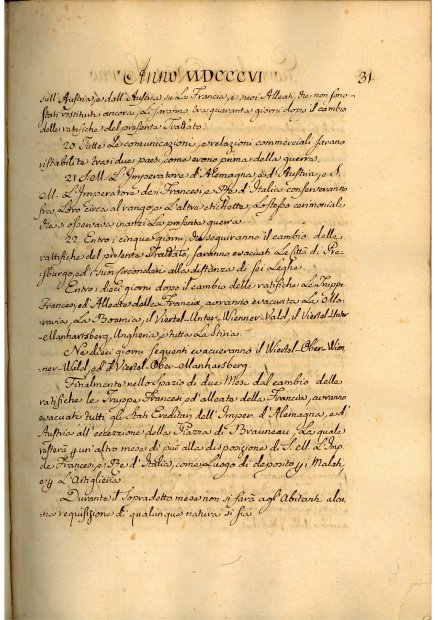 Anno MDCCCVI 31
sull'Austria, e dall'Austria su La Francia, e suoi Alleati, che non sono
stati restituiti ancora, Li saranno tra quaranta giorni dopo il cambio
delle ratifiche del presente Trattato.
20 Tutte Le comunicazioni, e relazioni commerciali sarano
ristabilite tra i due paesi come erono prima della guerra.
21 S. M. L'Imperatore d'Alemagna, e d'Austria, e S.
M. L'Imperatore de Francesi, e Rè d'Italia conserveranno
fra Loro circa al rango, e L'altre etichette, Lo stesso cerimoniale
che si osservava inanti La presente guerra.
22. Entro i cinque giorni, che seguiranno il cambio delle
rattifiche del presente Trattato, saranno evacuati La Città di Pre-
sburgo, ed i suoi circondari alla distanza di sei Leghe.
Entro i dieci giorni dopo il cambio delle ratifiche Le Truppe
Francesi, ed Alleate della Francia, avranno evacuata La Mo-
ravia, La Boemia, il Viertel-Unter-Wienner-Vald, il Viertel-Unter
-Manhartsberg, Ungheria, e tutta La Stiria.
Ne dieci giorni seguenti evacueranno il Viertel-Ober-Wien-
ner-Wald, ed il Viertel-Ober-Manharsberg.
Finalmente nello Spazio di due Mesi dal cambio delle
ratifiche le Truppe Francesi, ed alleate della Francia, avranno
evacuati tutti gli Stati Ereditari dell'Imper. d'Alemagna, e d'
Austria all'eccezzione della Piazza di Braunau, La quale
resterà un'altro mese di più alla disposizione di S. M. L'Imp.
de Francesi, e Rè d'Italia, come Luogo di deposito Malati,
e L'Artiglieria.
Durante il Sopradetto mese non si farà agl'Abitanti alcu-
na requisizione di qualunque natura si sia.